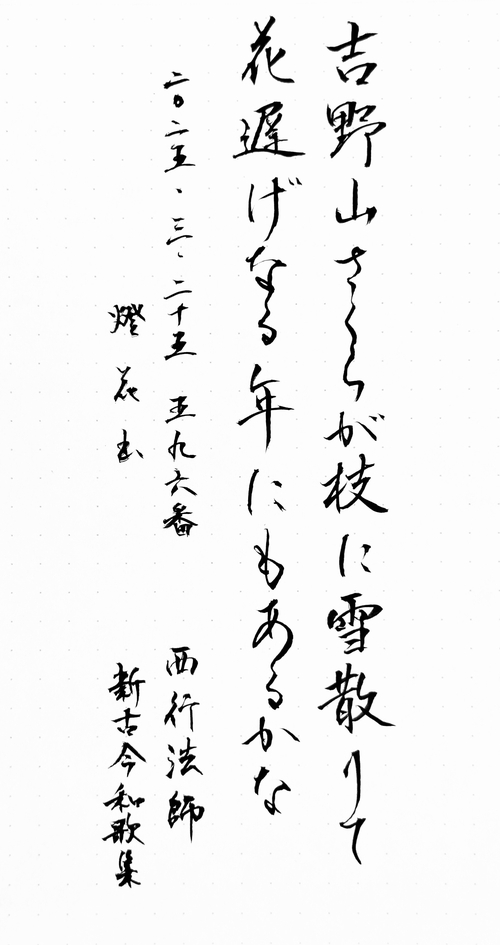 吉野山さくらが枝に雪散りて
花遅げなる年にもあるかな
二〇二五、三、二十五 五九六番
西行法師
燈花書
新古今和歌集